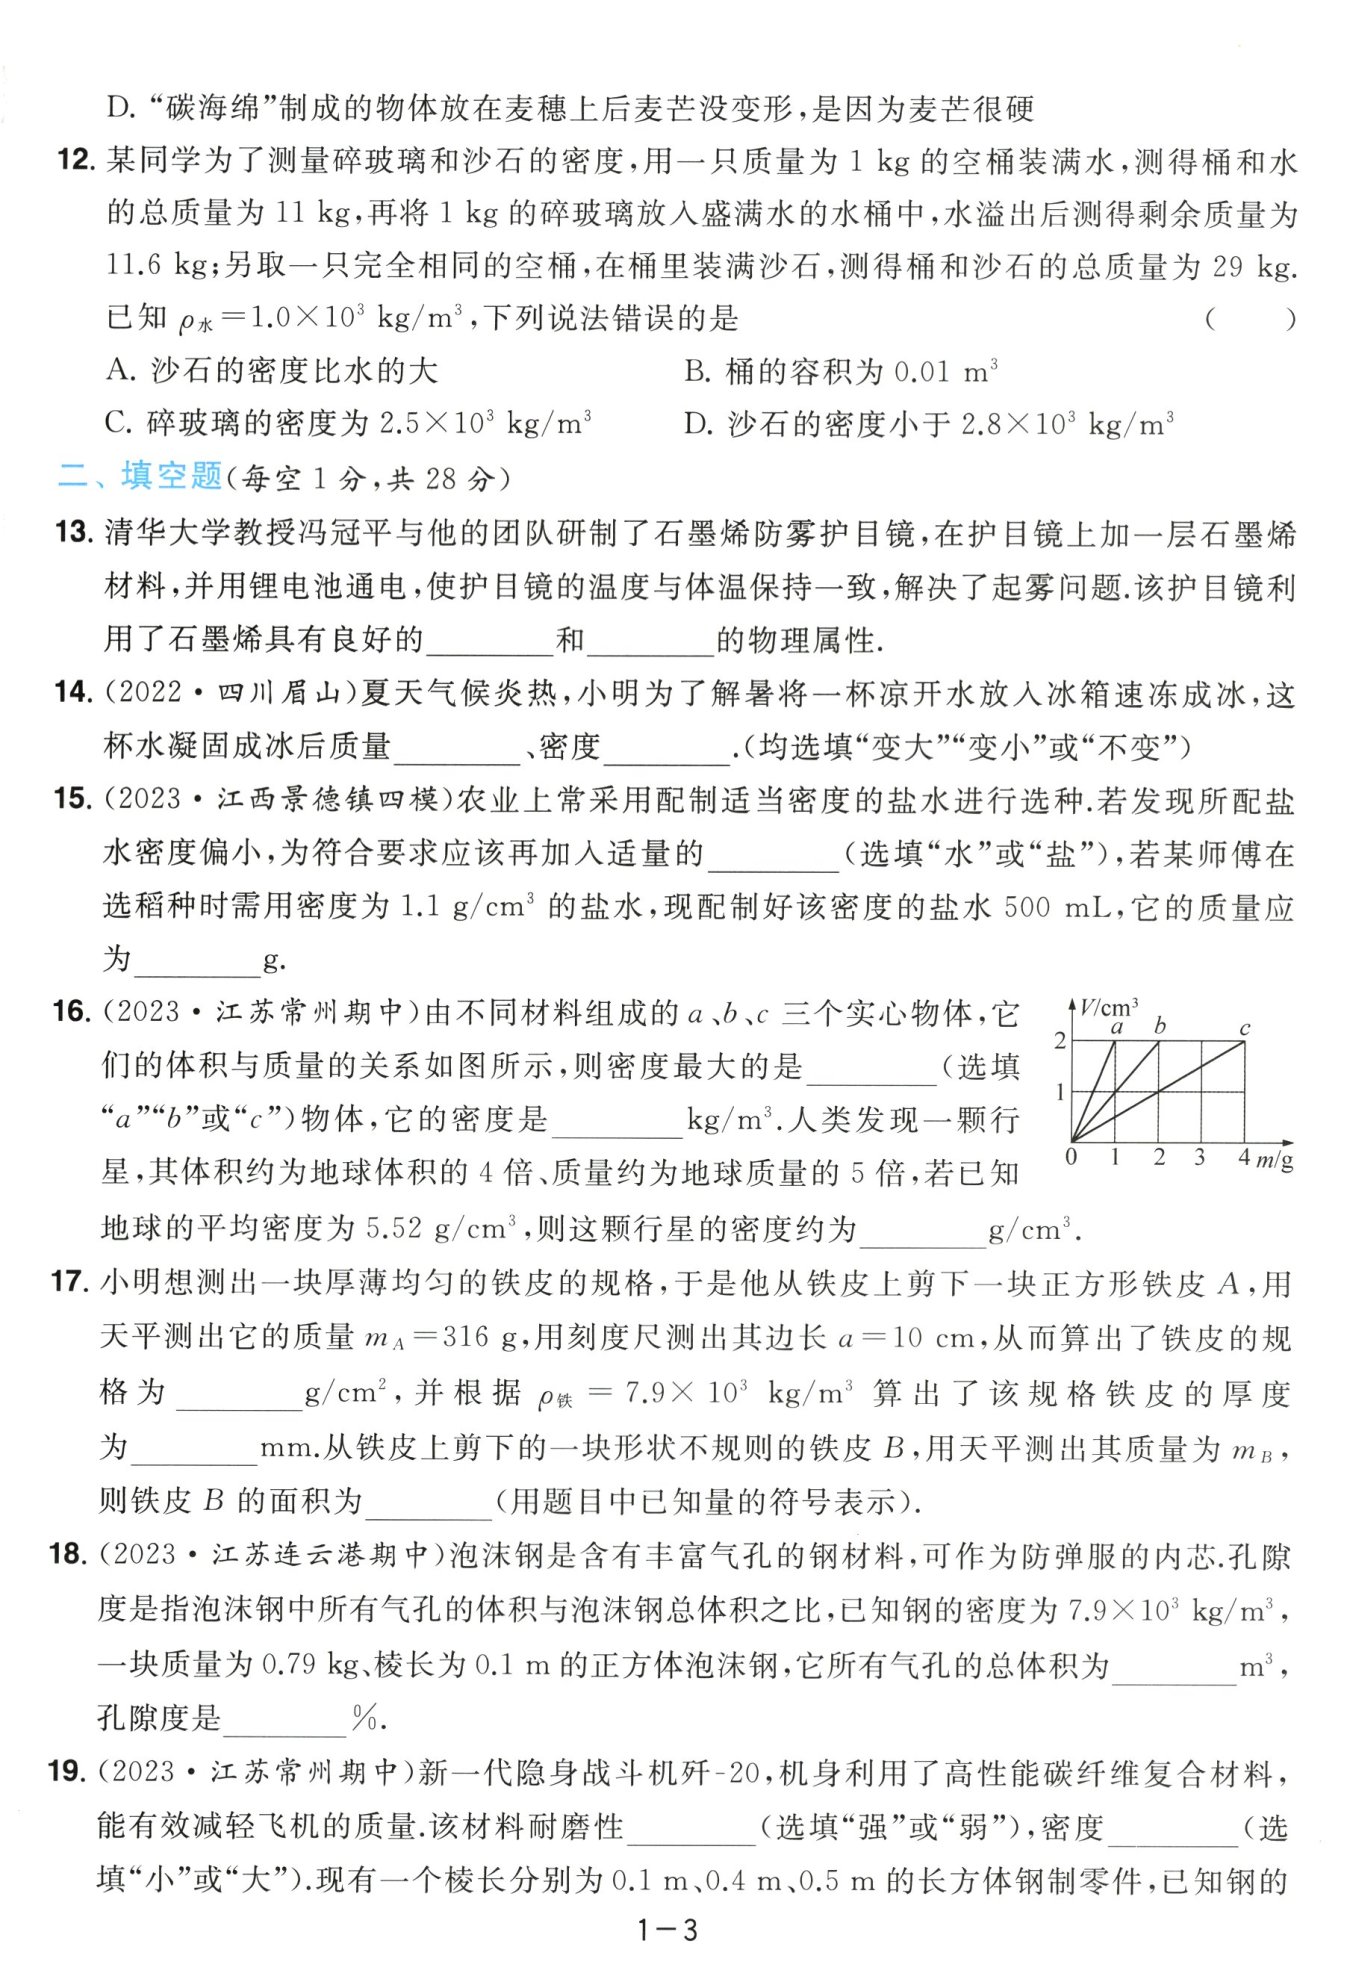 D. “碳海绵”制成的物体放在麦穗上后麦芒没变形,是因为麦芒很硬
12. 某同学为了测量碎玻璃和沙石的密度,用一只质量为 1 kg 的空桶装满水,测得桶和水
的总质量为 11 kg,再将 1 kg 的碎玻璃放入盛满水的水桶中,水溢出后测得剩余质量为
11.6 kg;另取一只完全相同的空桶,在桶里装满沙石,测得桶和沙石的总质量为 29 kg.
已知 ρ水=1.0×10³ kg/m³,下列说法错误的是 (  )
A. 沙石的密度比水的大 B. 桶的容积为 0.01 m³
C. 碎玻璃的密度为 2.5×10³ kg/m³ D. 沙石的密度小于 2.8×10³ kg/m³
二、填空题(每空 1 分,共 28 分)
13. 清华大学教授冯冠平与他的团队研制了石墨烯防雾护目镜,在护目镜上加一层石墨烯
材料,并用锂电池通电,使护目镜的温度与体温保持一致,解决了起雾问题.该护目镜利
用了石墨烯具有良好的________和________的物理属性.
14. (2022·四川眉山)夏天气候炎热,小明为了解暑将一杯凉开水放入冰箱速冻成冰,这
杯水凝固成冰后质量________、密度________.(均选填“变大”“变小”或“不变”)
15. (2023·江西景德镇四模)农业上常采用配制适当密度的盐水进行选种.若发现所配盐
水密度偏小,为符合要求应该再加入适量的________(选填“水”或“盐”),若某师傅在
选稻种时需用密度为 1.1 g/cm³ 的盐水,现配制好该密度的盐水 500 mL,它的质量应
为________g.
16. (2023·江苏常州期中)由不同材料组成的 a、b、c 三个实心物体,它
们的体积与质量的关系如图所示,则密度最大的是________(选填
“a”“b”或“c”)物体,它的密度是________kg/m³.人类发现一颗行
星,其体积约为地球体积的 4 倍、质量约为地球质量的 5 倍,若已知
地球的平均密度为 5.52 g/cm³,则这颗行星的密度约为________g/cm³.
V/cm³
a b c
2
1
0 1 2 3 4 m/g
17. 小明想测出一块厚薄均匀的铁皮的规格,于是他从铁皮上剪下一块正方形铁皮 A,用
天平测出它的质量 mA=316 g,用刻度尺测出其边长 a=10 cm,从而算出了铁皮的规
格为________g/cm²,并根据 ρ铁=7.9×10³ kg/m³ 算出了该规格铁皮的厚度
为________mm.从铁皮上剪下的一块形状不规则的铁皮 B,用天平测出其质量为 mB,
则铁皮 B 的面积为________(用题目中已知量的符号表示).
18. (2023·江苏连云港期中)泡沫钢是含有丰富气孔的钢材料,可作为防弹服的内芯.孔隙
度是指泡沫钢中所有气孔的体积与泡沫钢总体积之比,已知钢的密度为 7.9×10³ kg/m³,
一块质量为 0.79 kg、棱长为 0.1 m 的正方体泡沫钢,它所有气孔的总体积为________m³,
孔隙度是________%.
19. (2023·江苏常州期中)新一代隐身战斗机歼-20,机身利用了高性能碳纤维复合材料,
能有效减轻飞机的质量.该材料耐磨性________(选填“强”或“弱”),密度________(选
填“小”或“大”).现有一个棱长分别为 0.1 m、0.4 m、0.5 m 的长方体钢制零件,已知钢的
1-3